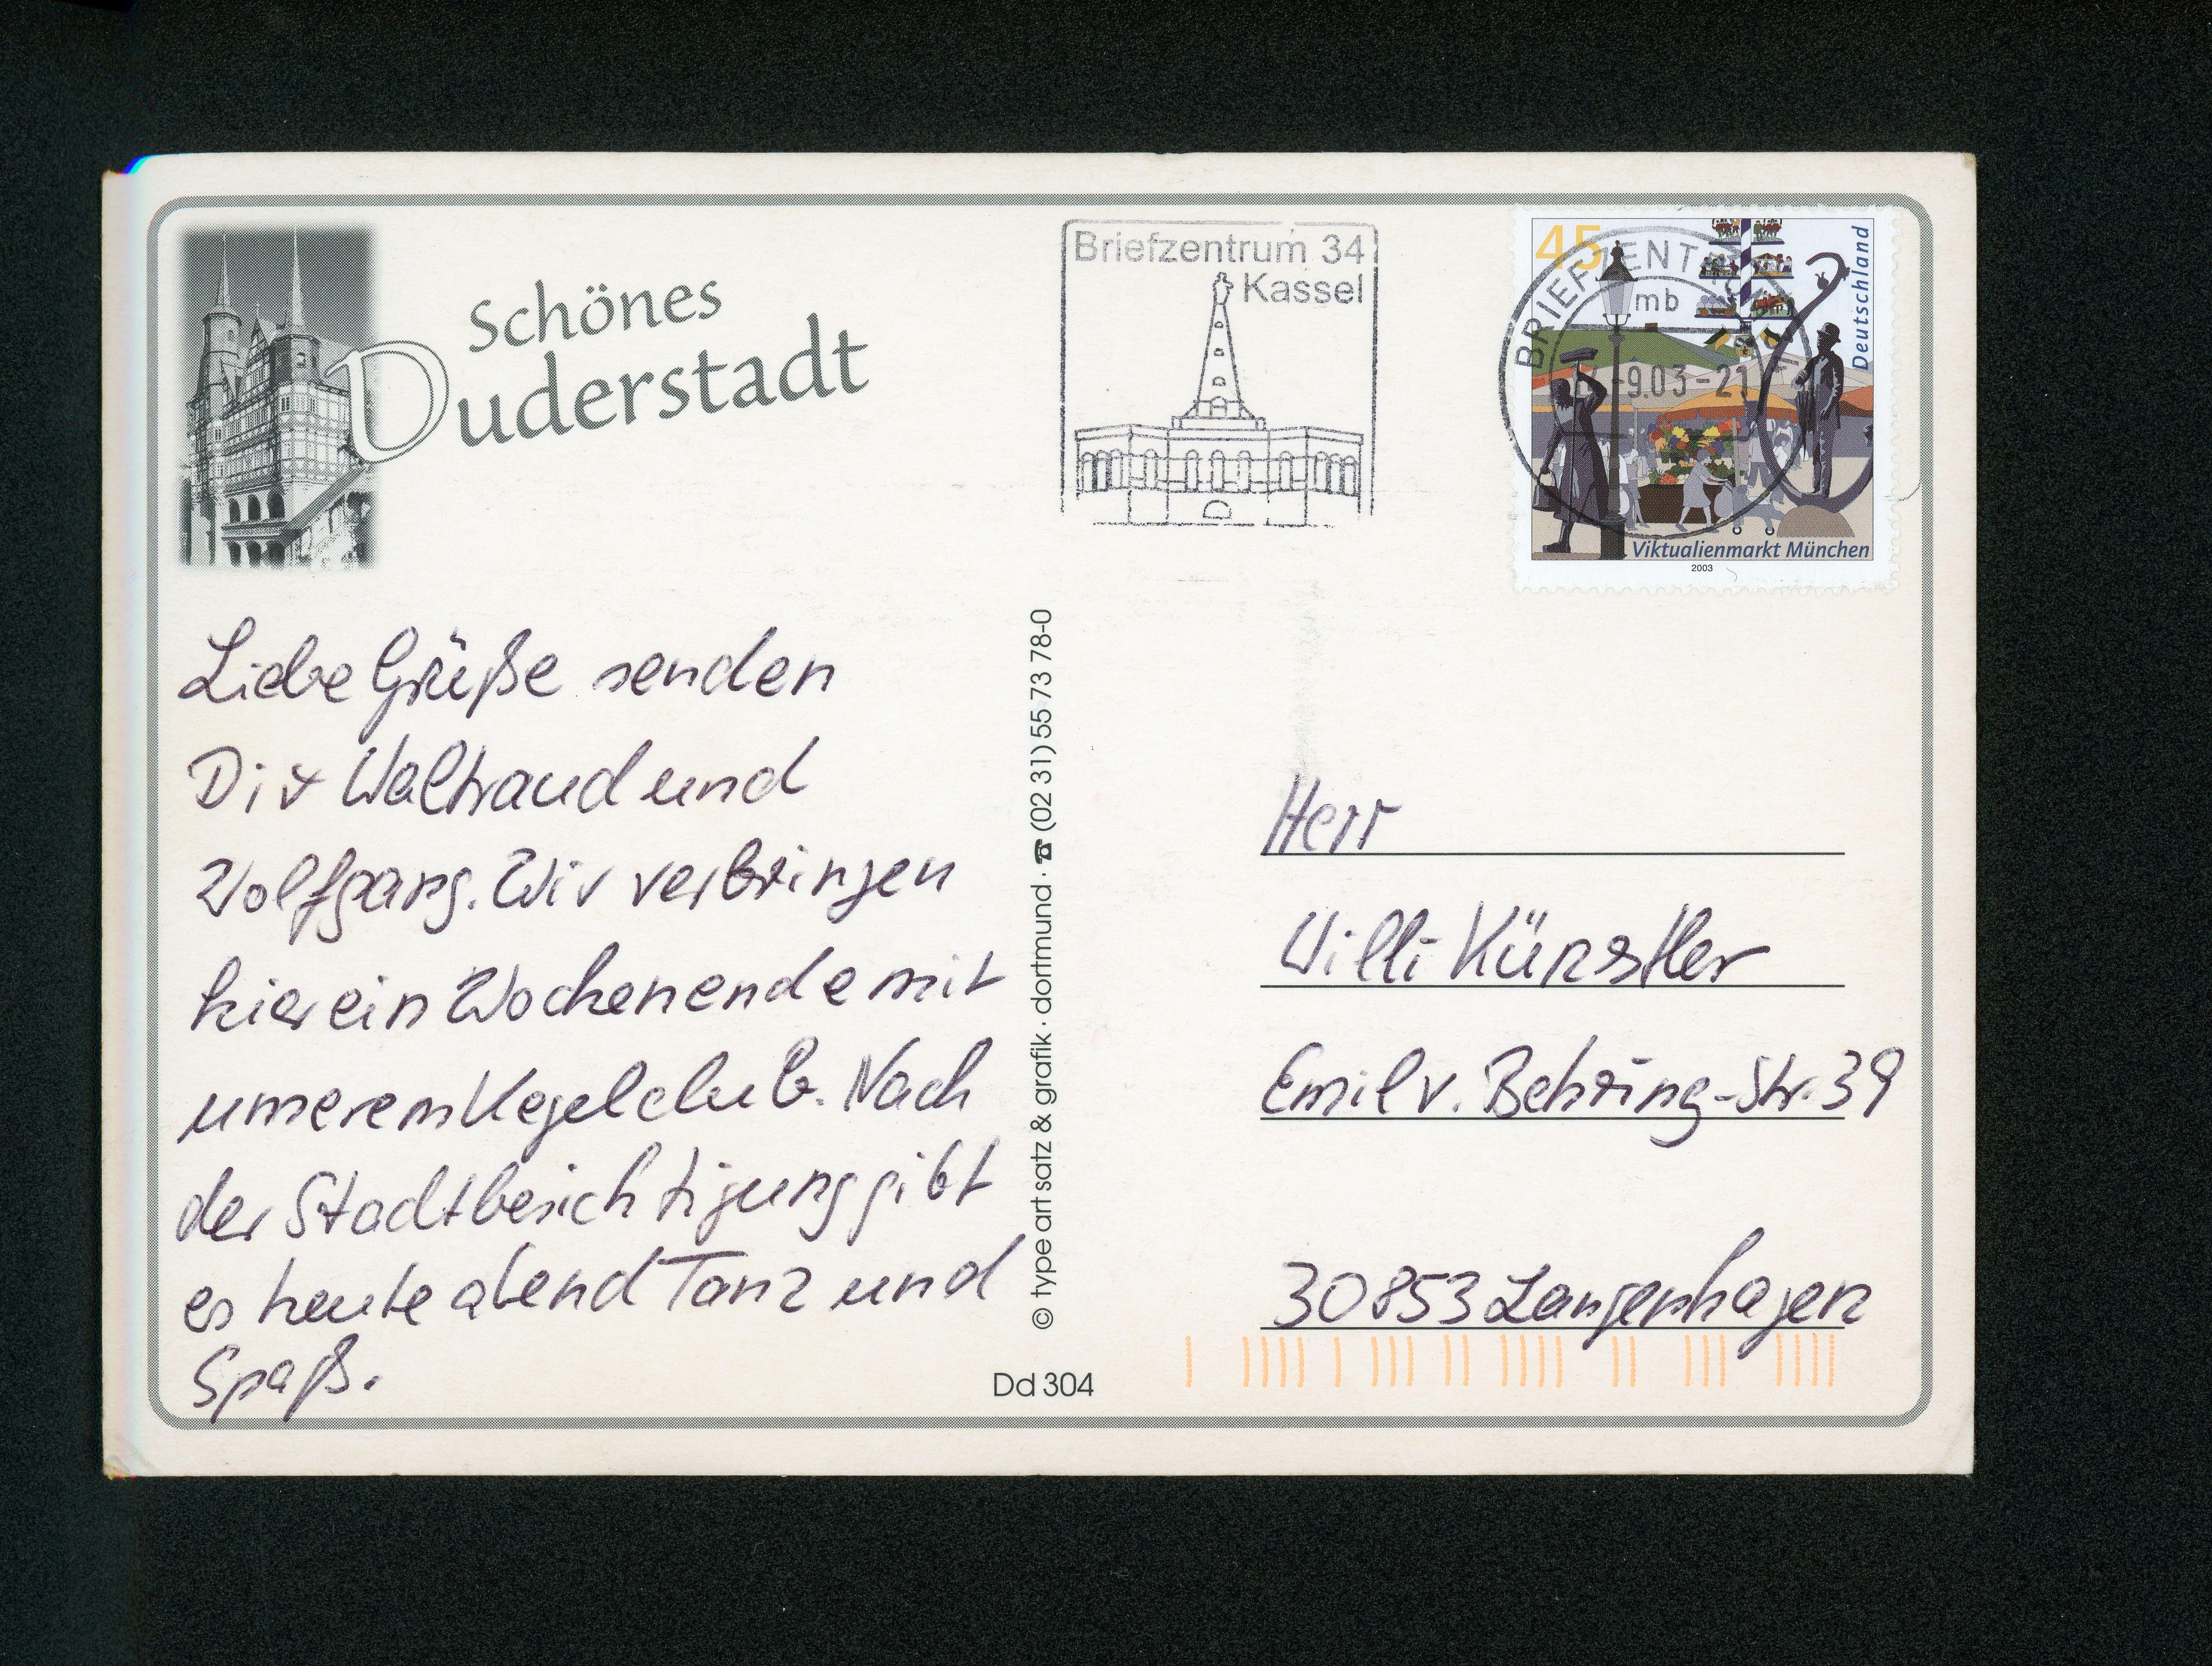 Schönes
Duderstadt
Briefzentrum 34
Kassel
45
Deutschland
BRIEFZENT
mb
-9.03-21
Viktualienmarkt München
2003
Liebe Grüße senden
Dir Waltraud und
Wolfgang. Wir verbringen
hier ein Wochenende mit
unserem Kegelclub. Nach
der Stadtbesichtigung gibt
es heute abend Tanz und
Spaß.
© type art satz & grafik · dortmund · ☎ (02 31) 55 73 78-0
Dd 304
Herr
Willi Künstler
Emil v. Behring-Str. 39
30853 Langenhagen